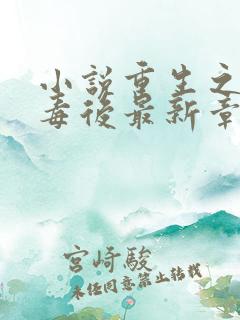 小説重生之
毒後最新章
宮崎駿
未經同意禁止轉載